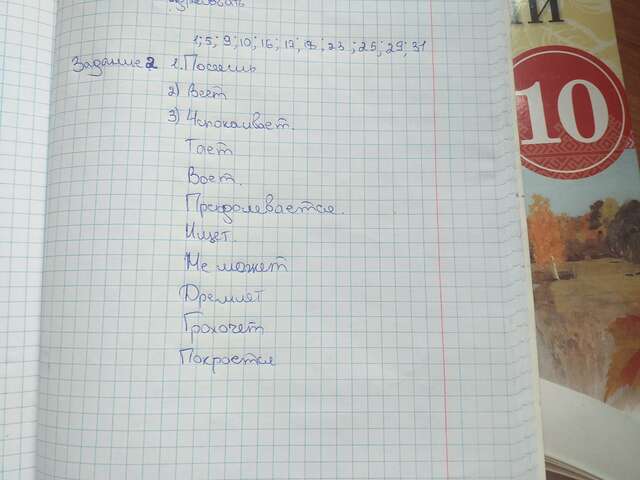 1; 5; 9; 10; 16; 17; 18; 23; 25; 29; 31
Задание 2 1. Посеешь
2) Веет
3) Успокаивает.
Тает
Воет.
Преодолевается.
Ищет.
Не может
Дремлет
Грохочет
Покроется
Й
10